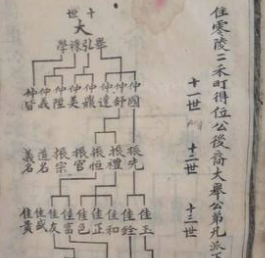 住零陵二禾町得位公後裔大舉公弟兄派下
十世
大
學祿弘舉
十一世
仲國
仲舒
仲達
仲龍
仲美
仲陞
仲義
仲皆
十二世
振先
振禮
振恒
振官
振宗
蓮名
義名
十三世
佳玉
佳銓
佳和
佳正
佳色
佳富
佳友
佳武
佳貴